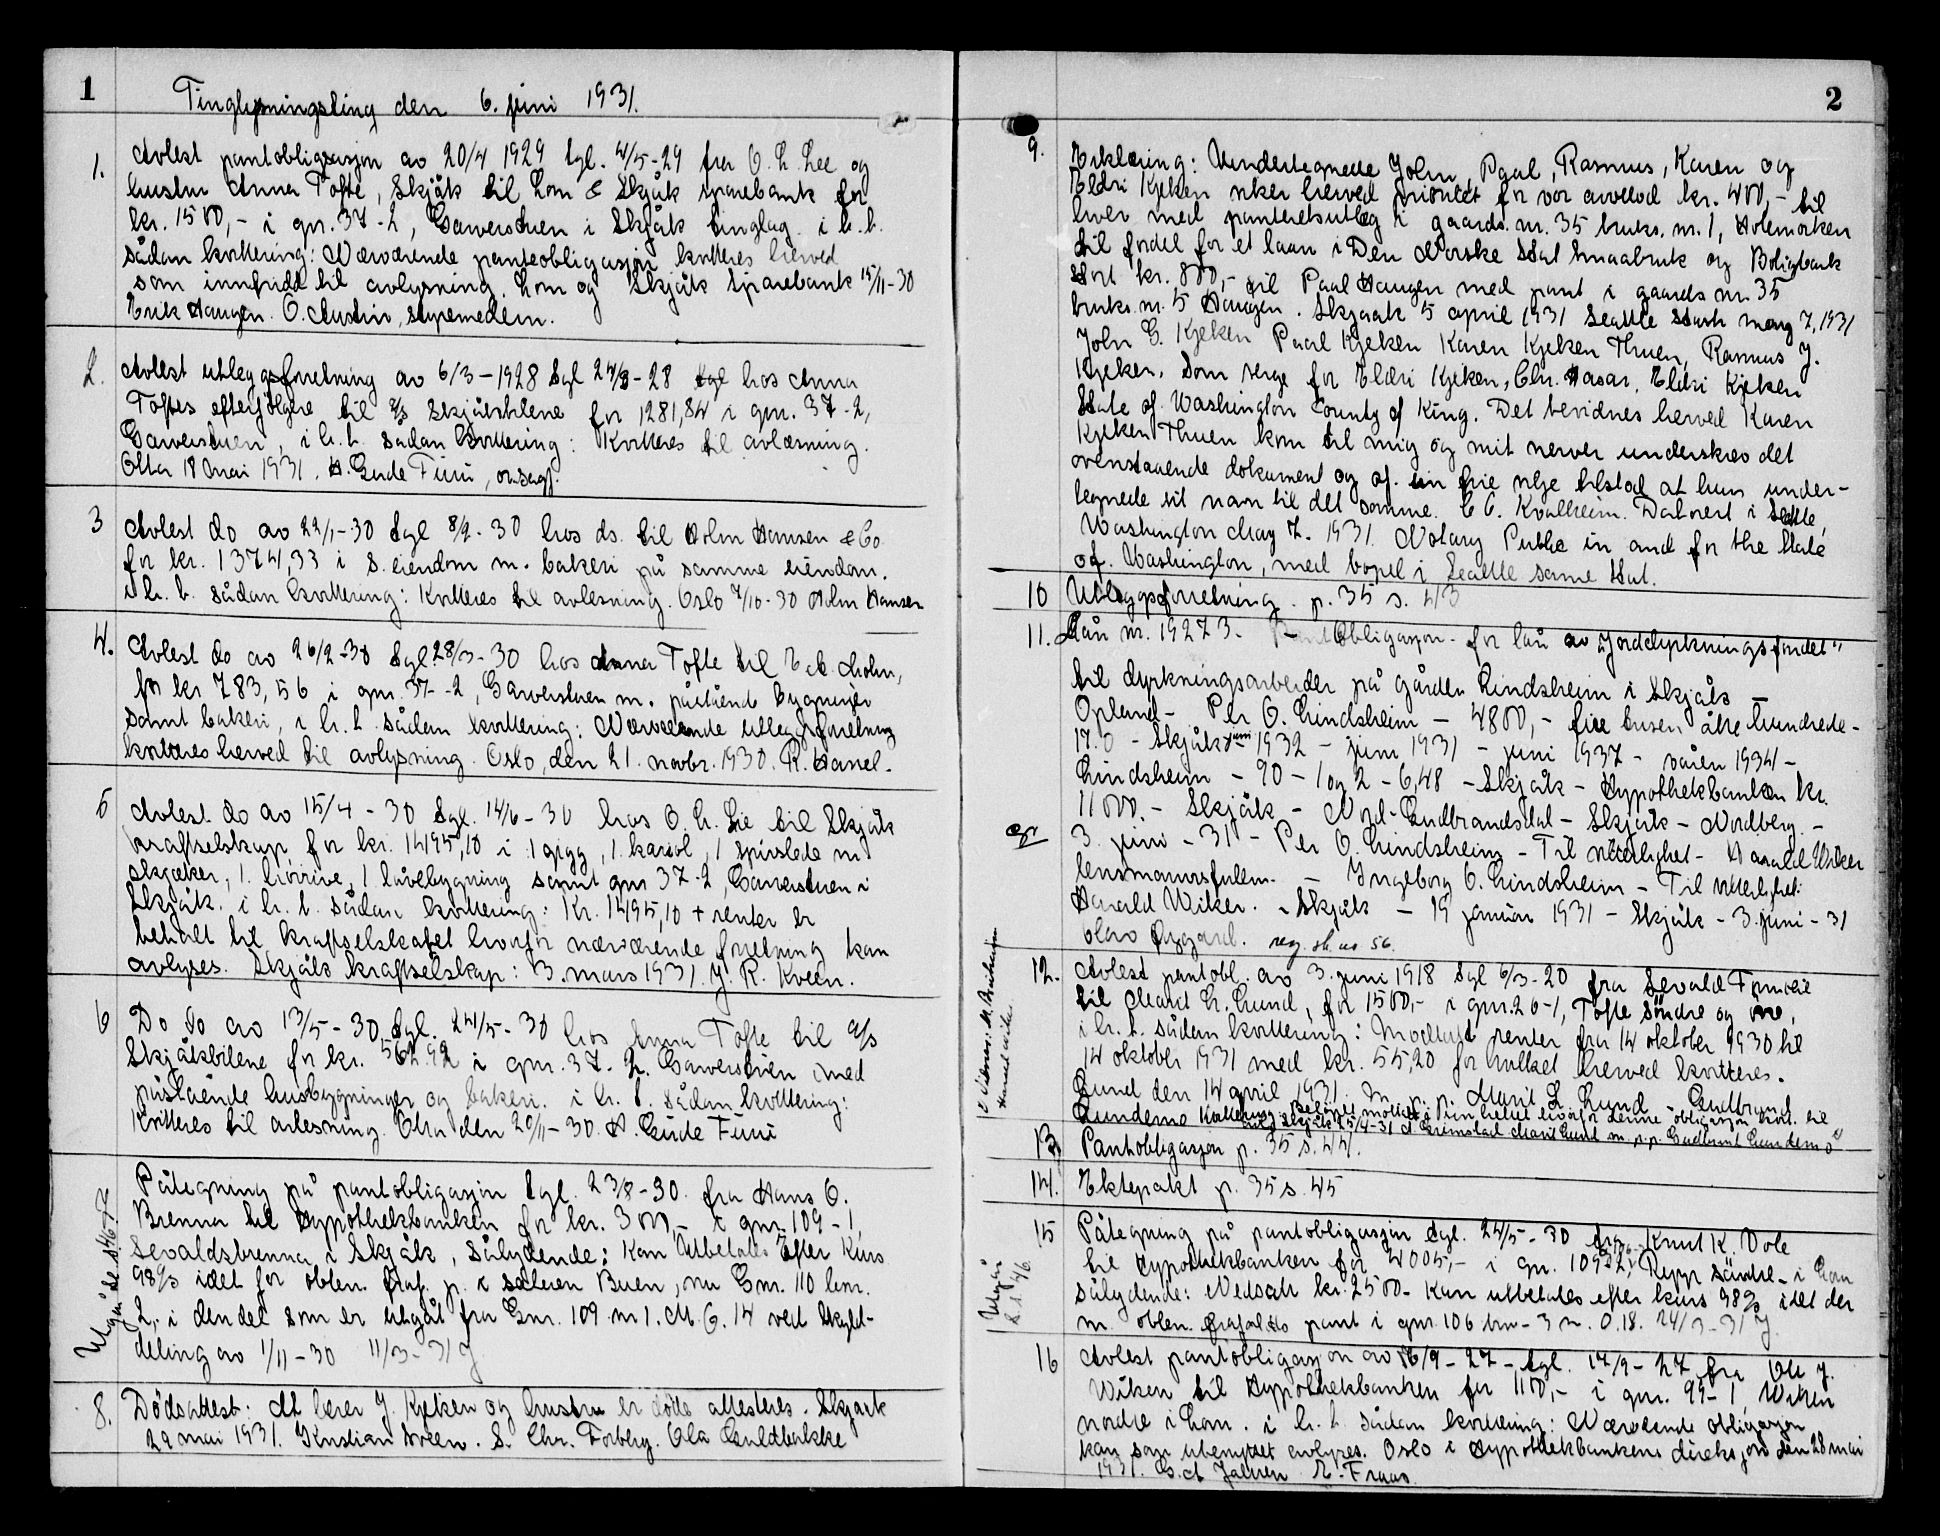 1
Tinglysningsting den 6. juni 1931.
1. Avlest pantobligasjon av 20/4 1929 tgl. 4/5-29 fra O. H. Lee og
hustru Anna Tofte, Skjåk til Lom & Skjåk sparebank for
kr. 1500,- i gnr. 37-2, Garverstuen i Skjåk tinglag. i h.h.
sådan kvittering: Nærværende panteobligasjon kvitteres herved
som innfridd til avlysning. Lom og Skjåk Sparebank 15/11-30
Erik Haugen. O. Austin, styremedlem.
2. Avlest utleggsforretning av 6/3-1928 tgl 24/3-28 tgl hos Anna
Toftes efterfølgere til A/S Skjåkbilene for 1281,84 i gnr. 37-2,
Garverstuen, i h.h. sådan kvittering: Kvitteres til avlæsning.
Otta 18 mai 1931. H. Gude Furu, o.r.sagf.
3 Avlest do av 22/1-30 tgl 8/2-30 hos ds. til Holm Hansen & Co.
for kr. 1374,33 i s. eiendom m. bakeri på samme eiendom.
i h.h. sådan kvittering: Kvitteres til avlesning. Oslo 7/10-30 Holm Hansen
4. Avlest do av 26/2-30 tgl 28/3-30 hos Anna Tofte til E. A. Holm,
for kr 783,56 i gnr. 37-2, Garverstuen m. påstående bygninger
samt bakeri, i h.h. sådan kvittering: Nærværende utleggsforretning
kvitteres herved til avlysning. Oslo, den 21. novbr. 1930. R. Hanel.
5 Avlest do av 15/4-30 tgl. 14/6-30 hos O. H. Lie til Skjåk
kraftselskap for kr. 1495,10 i 1 gigg, 1. karjol, 1 spisslede m
skjæker, 1. hørive, 1 låvebygning samt gnr 37-2, Garverstuen i
Skjåk. i h.h. sådan kvittering: Kr. 1495,10 + renter er
betalt til kraftselskapet hvorfor nærværende forretning kan
avlyses. Skjåk kraftselskap: 3. mars 1931. J. R. Kveen.
6 Do do av 13/5-30 tgl. 24/5-30 hos Anna Tofte til A/S
Skjåkbilene for kr. 562.92 i gnr. 37-2. Garverstuen med
påstående husbygninger og bakeri. i h.h. sådan kvittering:
Kvitteres til avlesning. Otta den 20/11-30. H. Gude Furu
7 Påtegning på pantobligasjon tgl. 23/8-30. fra Hans O.
Brenna til Hypothekbanken for kr. 3000,- i gnr. 109-1,
Sevaldsbrenna i Skjåk, sålydende: Kan utbetales efter kurs
98% idet for oblen. fraf. p. i sæteren Buen, nu Gnr. 110 brnr.
2, i den del som er utgåt fra Gnr. 109 nr 1. M. G. 14 ved skyld-
deling av 1/11-30 11/3-31 J
Utgår se s. 46
8. Dødsattest: At J. Kjeken og hustru er døde attesteres. Skjaak
29 mai 1931. Kristian S. Chr. Forberg. Ola Guldbakke
2
9. Erklæring: Undertegnede John, Paal, Rasmus, Karen og
Eldri Kjeken viker herved prioritet for vor arvelod kr. 400,- til
hver med panteretsutlæg i gaards. nr. 35 bruks. nr. 1, Holemorken
til fordel for et laan i Den Norske Stat Smaabruk og Boligbank
stort kr. 800,- til Paal Haugen med pant i gaards nr. 35
bruks. nr. 5 Haugen. Skjaak 5 april 1931 Seattle Wash may 7, 1931
John G. Kjeken Paal Kjeken Karen Kjeken Thuen, Rasmus J.
Kjeken. Som verge for Eldri Kjeken, Chr. Aasar, Eldri Kjeken
State of Washington County of King. Det bevidnes herved Karen
Kjeken Thuen kom til mig og mit nerver underskrev det
ovenstaaende dokument og af sin frie vilje tilstod at hun under-
tegnede sit navn til det somme. C C. Kvalheim. Datorert i Seattle,
Washington May 7. 1931. Notary Public in and for the State
of Washington, med bopel i Seattle same Stat.
10 Utleggsforretning. p. 35 s. 43
11. Lån nr. 19273. Pantobligasjon for lån av "Jorddyrkningsfondet"
til dyrkningsarbeider på gården Lindsheim i Skjåk -
Opland - Per O. Lindsheim - 4800,- fire tusen åtte hundrede -
17.0 - Skjåk juni 1932 - juni 1931 - juni 1937 - våren 1934 -
Lindsheim - 90 - 1 og 2 - 6,48 - Skjåk - Hypothekbanken kr.
11000.- Skjåk - Nord-Gudbrandsdal - Skjåk - Nordberg. -
3. juni - 31 - Per O. Lindsheim - Til vitterlighet - Harald Wiker
lensmannsfullm. - Ingeborg O. Lindsheim - Til vitterlighet:
Harald Wiker. - Skjåk - 19 januar 1931 - Skjåk - 3. juni - 31
Olav Øygard. reg. sk. nr 56.
12. Avlest pantobl. av 3. juni 1918 tgl 6/3-20 fra Sevald
til Marit L. Lund, for 1500,- i gnr. 20-1, Tofte søndre og øvre,
i h.h. sådan kvittering: Modtatt renter fra 14 oktober 1930 til
14 oktober 1931 med kr. 55,20 for hvilket herved kvitteres.
Lund den 14 april 1931. m. p. p. Marit L. Lund - Gudbrand
Lundemo Kvittering: Beløpet mottat i sin helhet hvorfor denne obligasjon kvit. til
avl. Skjåk 25/4-31 A Grimstad Marit Lund m. p. p. Gudbrand Lundemo
13 Pantobligasjon p. 35 s. 44.
14. Ektepakt p. 35 s. 45
15 Påtegning på pantobligasjon tgl. 24/5-30 fra Knut K. Vole
til Hypothekbanken for 4000,- i gnr. 109-2, Repp søndre i Lom
sålydende: Nedsatt kr. 2500.- Kan utbetales efter kurs 98% idet der
m. oblen. frafaldes pant i gnr. 106 brnr-3 m. 0.18. 24/3-31 J.
Utgår
s. 46
16 Avlest pantobligasjon av 16/9-27 - tgl. 17/9-27 fra Ole J.
Wiken til Hypothekbanken for 1100,- i gnr. 99-1, Wiken
nordre i Lom. i h.h. sådan kvittering: Nærværende obligasjon
kan som ubenyttet avlyses. Oslo i Hypothekbankens direksjon den 28 mai
1931. E. Fraas.